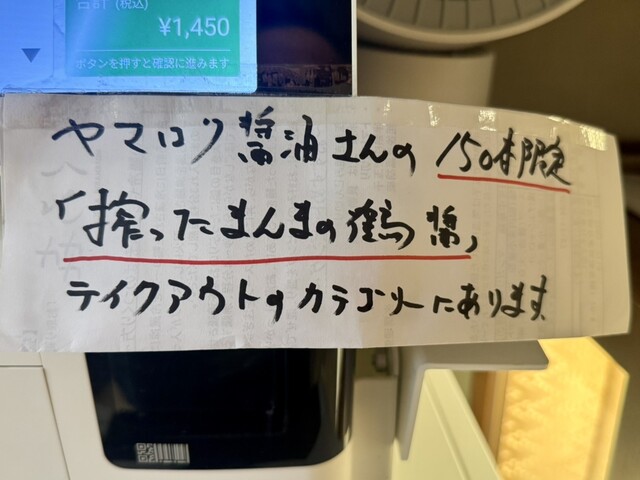 合計 (税込)
¥1,450
ボタンを押すと確認に進みます
ヤマロク醤油さんの 150本限定
「搾ったまんまの鶴醤」
テイクアウトのカテゴリーにあります